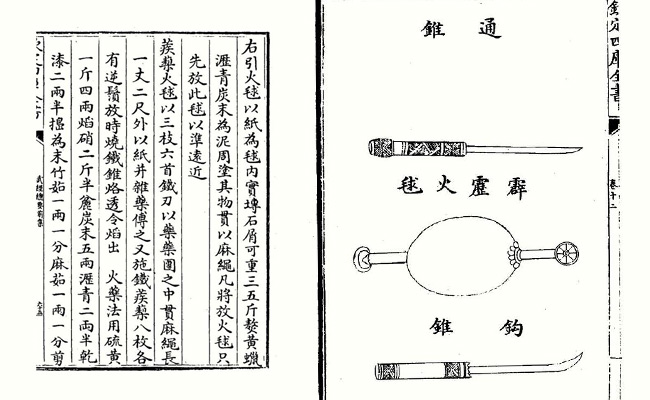 欽定四庫全書
卷十二
通錐
霹靂火毬
鈎錐
右引火毬以紙為毬內實塼石屑可重三五斤熬黃蠟
瀝青炭末為泥周塗其物貫以麻繩凡將放火毬只
先放此毬以準遠近
蒺藜火毬以三枝六首鐵刃以藥藥團之中貫麻繩長
一丈二尺外以紙并雜藥傅之又施鐵蒺藜八枚各
有逆鬚放時燒鐵錐烙透令焰出 火藥法用硫黃
一斤四兩焰硝二斤半麄炭末五兩瀝青二兩半乾
漆二兩半擣為末竹茹一兩一分麻茹一兩一分剪
武經總要前集